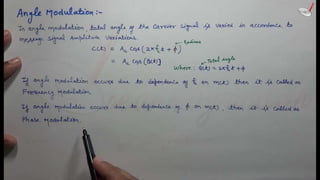 Angle Modulation:-
In angle modulation total angle of the carrier signal is varied in accordance to
message signal Amplitude Variations.
C(t) = Ac cos (2πfct + φ) → Radians
= Ac cos (θ(t)) → Total angle
where; θ(t) = 2πfct + φ
If angle modulation occurs due to dependency of fc on m(t) then it is called as
Frequency Modulation
If angle modulation occurs due to dependence of φ on m(t), then it is called as
Phase Modulation.